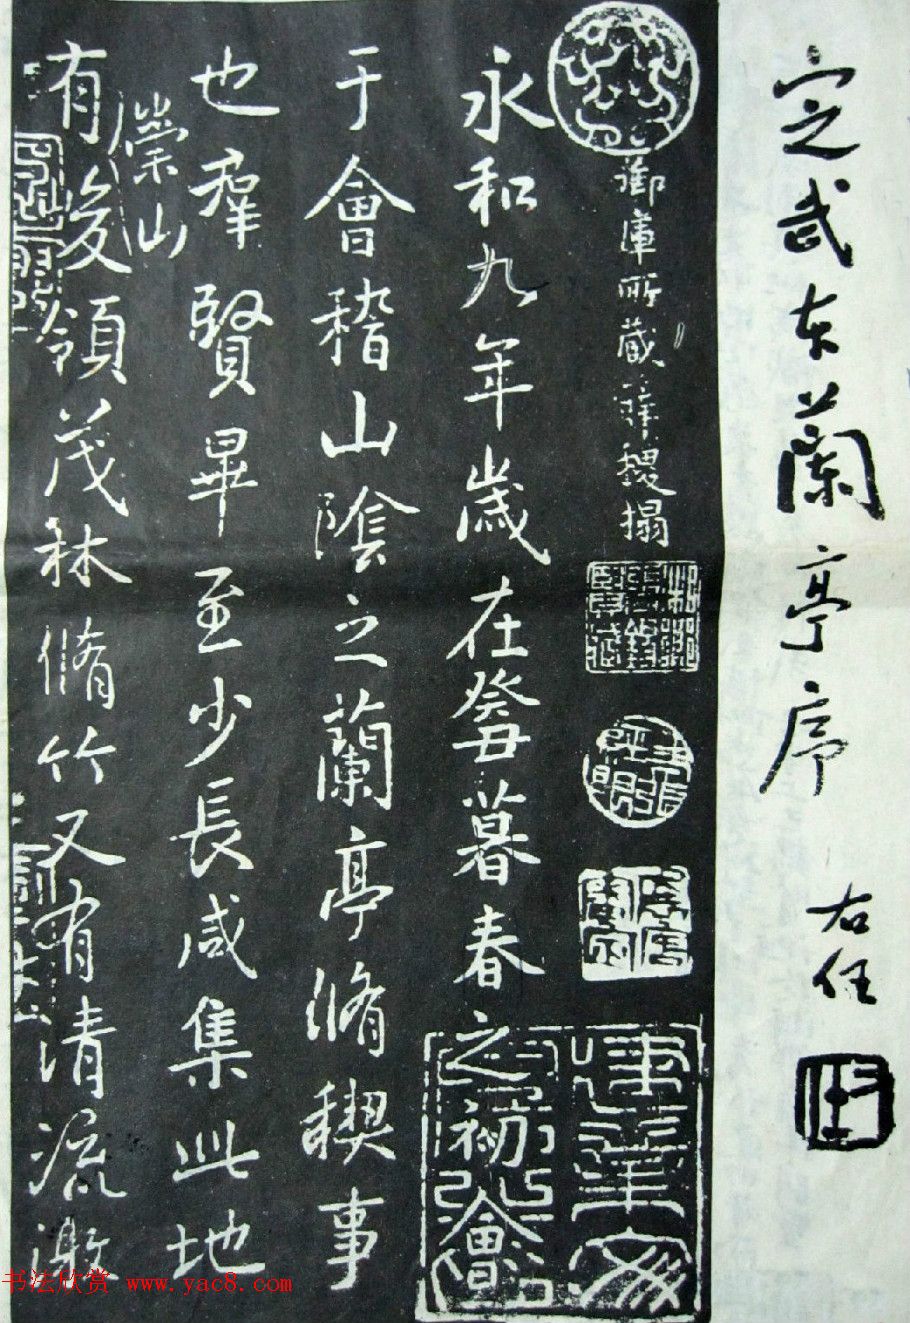 定武本蘭亭序
右任
御庫所藏薛稷搨
永和九年歲在癸丑暮春之初會
于會稽山陰之蘭亭脩稧事
也羣賢畢至少長咸集此地
有崇山峻領茂林脩竹又有清流激
书法欣赏 www.yac8.com